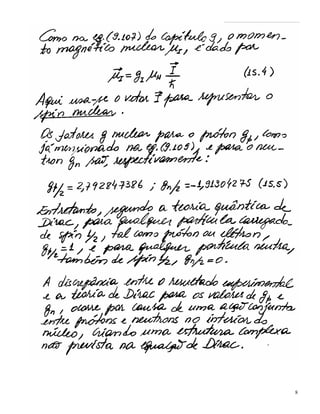 Como na eq. (9.107) do capítulo 9, o momen-
to magnético nuclear μ_I, é dado por
μ⃗_I = g_I μ_N I⃗/ħ (15.4)
Aqui usa-se o vetor I⃗ para representar o
spin nuclear.
Os fatores g nuclear para o próton g_p, como
já mencionado na eq. (9.105), e para o neu-
tron g_n são, respectivamente:
g_p/2 = 2,792847386 ; g_n/2 = -1,91304275 (15.5)
Entretanto, segundo a teoria quântica de
Dirac, para qualquer partícula carregada
de spin 1/2, tal como próton ou elétron,
g_p/2 = 1, e para qualquer partícula neutra,
também de spin 1/2, g_n/2 = 0.
A discrepância entre o resultado experimental
e a teoria de Dirac para os valores de g_p e
g_n, ocorre por causa de uma ação conjunta
entre prótons e neutrons no interior do
núcleo, criando uma estrutura complexa
não prevista na equação de Dirac.
8